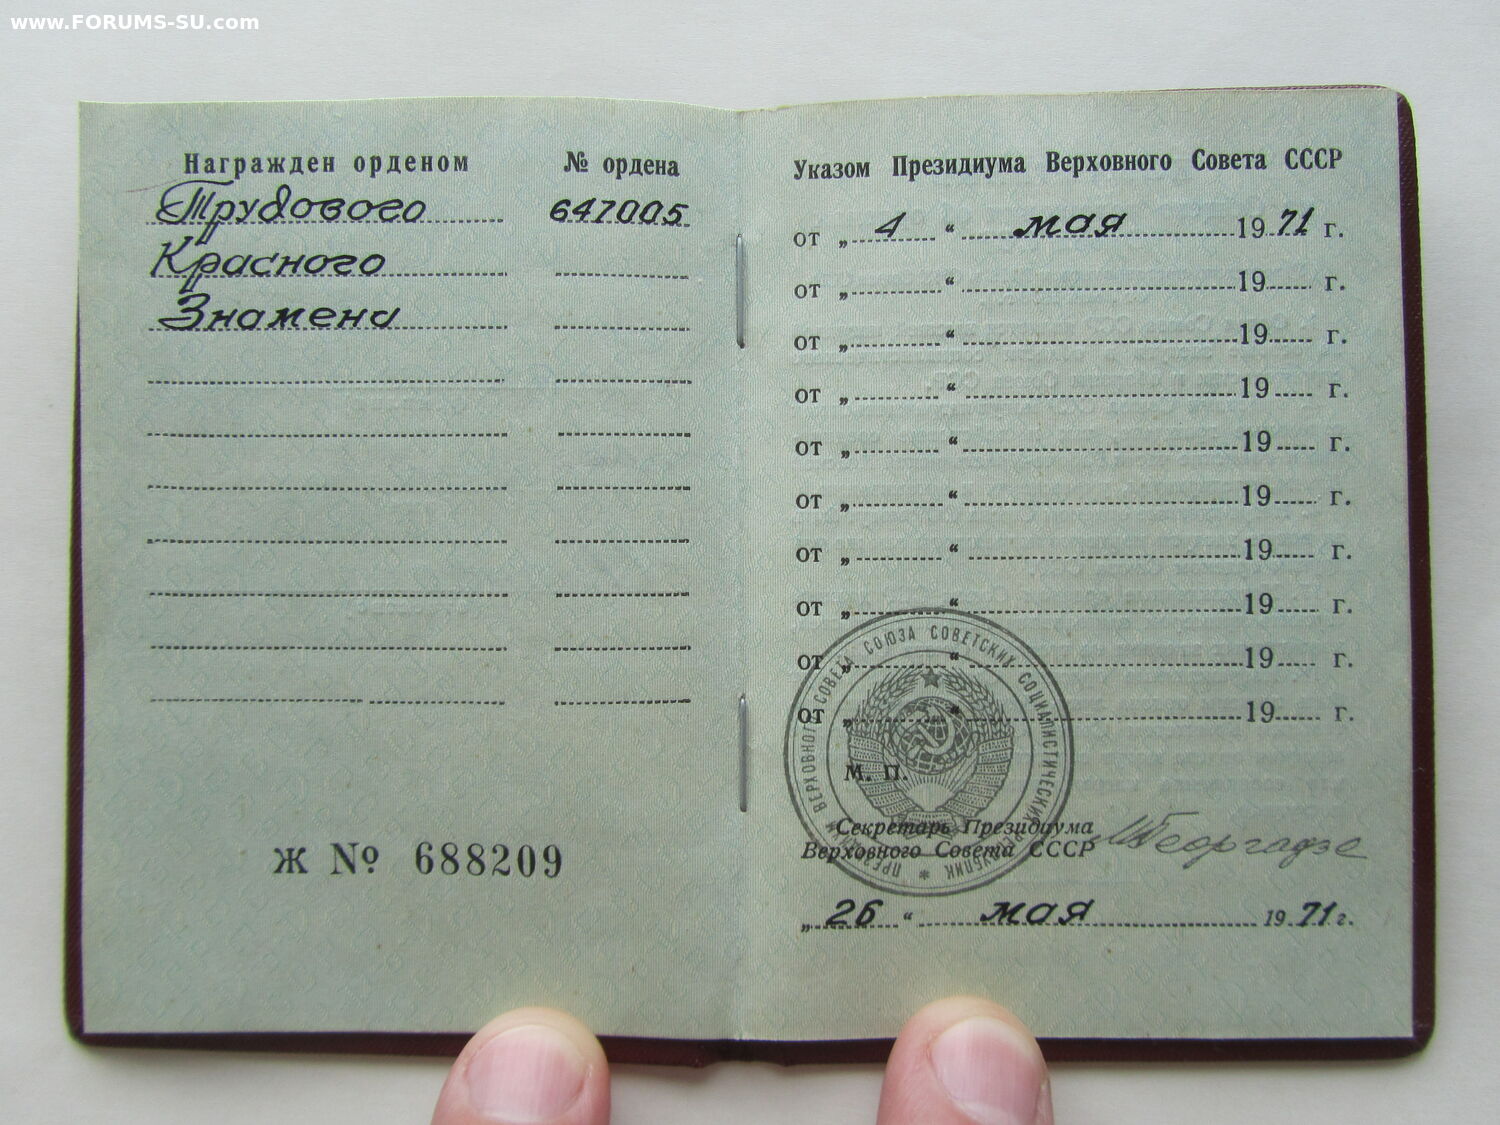 www.FORUMS-SU.com
Награжден орденом № ордена
Трудового 647005
Красного
Знамени
Ж № 688209
Указом Президиума Верховного Совета СССР
от „ 4 “ мая 19 71 г.
от „ “ 19 г.
от „ “ 19 г.
от „ “ 19 г.
от „ “ 19 г.
от „ “ 19 г.
от „ “ 19 г.
от „ “ 19 г.
от „ “ 19 г.
от „ “ 19 г.
ПРЕЗИДИУМ ВЕРХОВНОГО СОВЕТА СОЮЗА СОВЕТСКИХ СОЦИАЛИСТИЧЕСКИХ РЕСПУБЛИК
М. П.
Секретарь Президиума
Верховного Совета СССР МГеоргадзе
„ 26 “ мая 19 71 г.